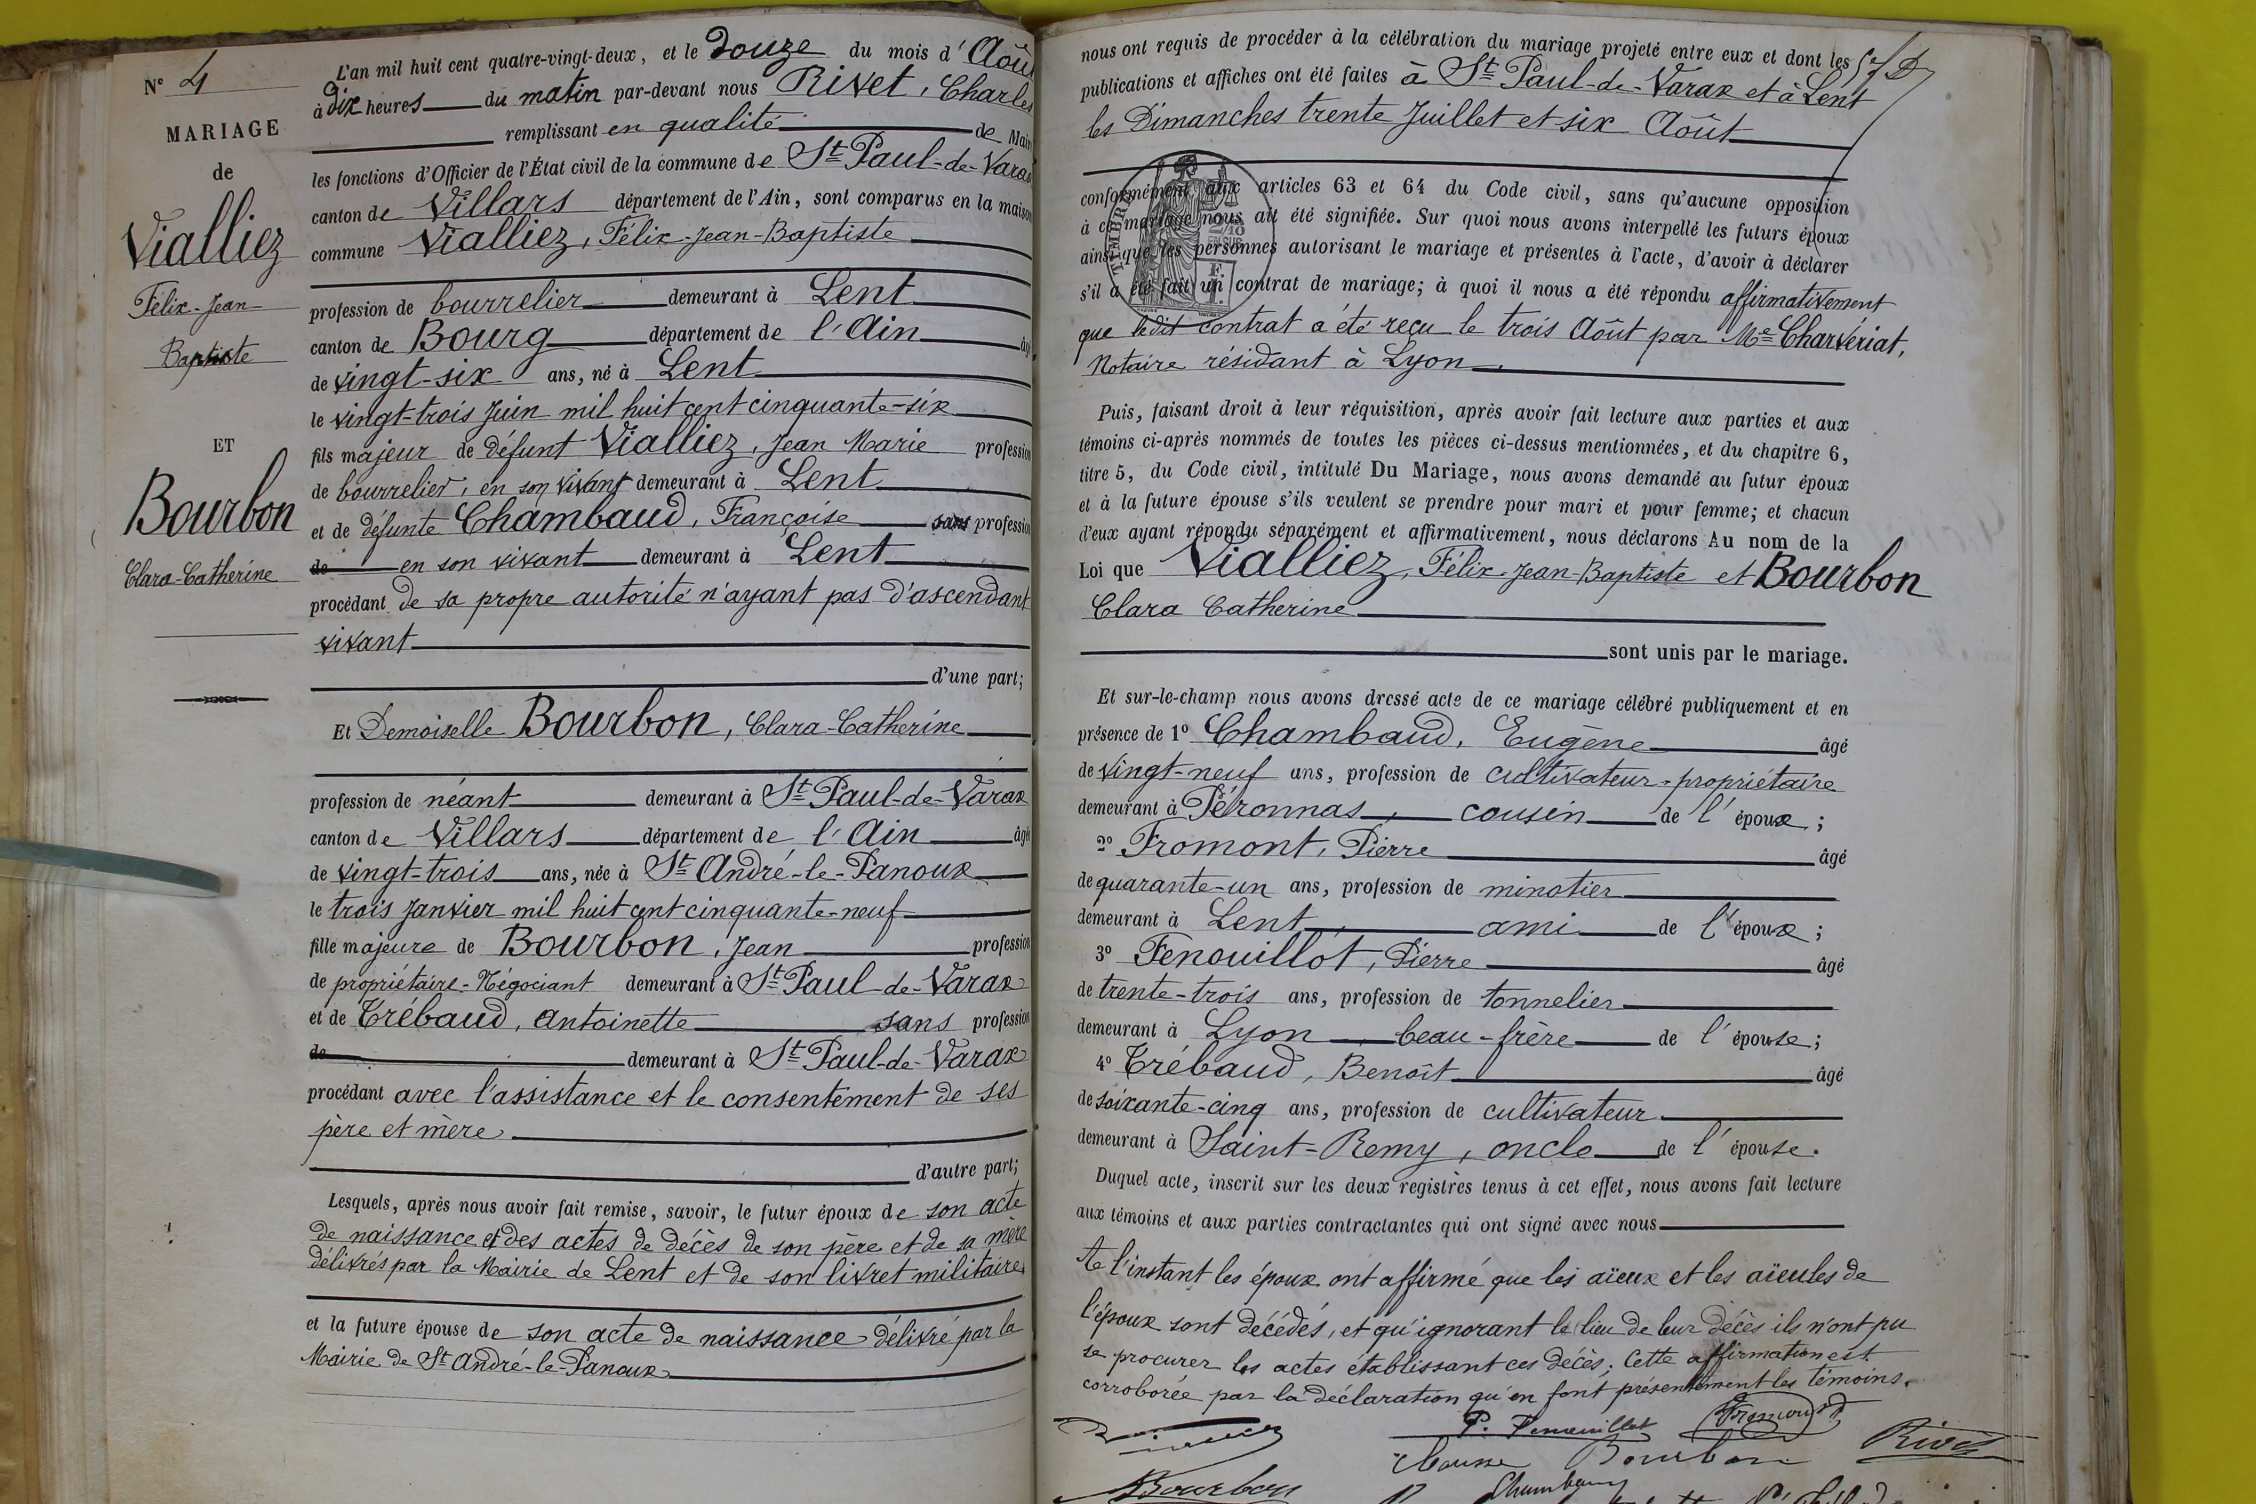 N° 4
MARIAGE
de
Vialliez
Félix-Jean
Baptiste
ET
Bourbon
Clara-Catherine
L'an mil huit cent quatre-vingt-deux, et le douze du mois d'Aoû
à dix heures du matin par-devant nous Rivet, Charles
remplissant en qualité de Mair
les fonctions d'Officier de l'État civil de la commune de St Paul-de-Varax
canton de Villars département de l'Ain, sont comparus en la maison
commune Vialliez, Félix-Jean-Baptiste
profession de bourrelier demeurant à Lent
canton de Bourg département de l'Ain âgé
de vingt-six ans, né à Lent
le vingt-trois Juin mil huit cent cinquante-six
fils majeur de défunt Vialliez, Jean Marie profession
de bourrelier, en son vivant demeurant à Lent
et de défunte Chambaud, Françoise sans profession
de en son vivant demeurant à Lent
procédant de sa propre autorité n'ayant pas d'ascendant
vivant
d'une part;
Et Demoiselle Bourbon, Clara-Catherine
profession de néant demeurant à St Paul-de-Varax
canton de Villars département de l'Ain âgé
de vingt-trois ans, née à St André-le-Panoux
le trois Janvier mil huit cent cinquante-neuf
fille majeure de Bourbon, Jean profession
de propriétaire-Négociant demeurant à St Paul-de-Varax
et de Trébaud, Antoinette sans profession
de demeurant à St Paul-de-Varax
procédant avec l'assistance et le consentement de ses
père et mère
d'autre part;
Lesquels, après nous avoir fait remise, savoir, le futur époux de son acte
de naissance et des actes de décès de son père et de sa mère
délivrés par la Mairie de Lent et de son livret militaire
et la future épouse de son acte de naissance délivré par la
Mairie de St André-le-Panoux
nous ont requis de procéder à la célébration du mariage projeté entre eux et dont les
publications et affiches ont été faites à St Paul-de-Varax et à Lent
les Dimanches trente Juillet et six Août
conformément aux articles 63 et 64 du Code civil, sans qu'aucune opposition
à ce mariage nous ait été signifiée. Sur quoi nous avons interpellé les futurs époux
ainsi que les personnes autorisant le mariage et présentes à l'acte, d'avoir à déclarer
s'il a été fait un contrat de mariage; à quoi il nous a été répondu affirmativement
que ledit contrat a été reçu le trois Août par Me Charvériat,
Notaire résidant à Lyon.
Puis, faisant droit à leur réquisition, après avoir fait lecture aux parties et aux
témoins ci-après nommés de toutes les pièces ci-dessus mentionnées, et du chapitre 6,
titre 5, du Code civil, intitulé Du Mariage, nous avons demandé au futur époux
et à la future épouse s'ils veulent se prendre pour mari et pour femme; et chacun
d'eux ayant répondu séparément et affirmativement, nous déclarons Au nom de la
Loi que Vialliez, Félix-Jean-Baptiste et Bourbon
Clara Catherine
sont unis par le mariage.
Et sur-le-champ nous avons dressé acte de ce mariage célébré publiquement et en
présence de 1° Chambaud, Eugène âgé
de vingt-neuf ans, profession de cultivateur-propriétaire
demeurant à Péronnas, cousin de l'époux;
2° Fromont, Pierre âgé
de quarante-un ans, profession de minotier
demeurant à Lent, ami de l'époux;
3° Fenouillot, Pierre âgé
de trente-trois ans, profession de tonnelier
demeurant à Lyon, beau-frère de l'épouse;
4° Trébaud, Benoît âgé
de soixante-cinq ans, profession de cultivateur
demeurant à Saint-Remy, oncle de l'épouse.
Duquel acte, inscrit sur les deux registres tenus à cet effet, nous avons fait lecture
aux témoins et aux parties contractantes qui ont signé avec nous
A l'instant les époux ont affirmé que les aïeux et les aïeules de
l'époux sont décédés, et qu'ignorant le lieu de leur décès ils n'ont pu
se procurer les actes établissant ces décès; Cette affirmation est
corroborée par la déclaration qu'en font présentement les témoins.
P. Fenouillot
Bourbon Rivet
Bourbon